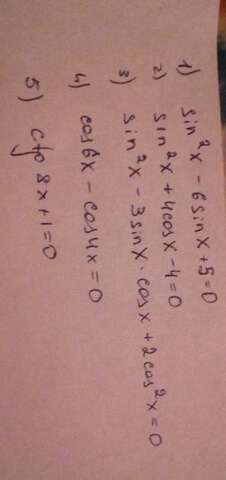 1) sin²x - 6sinx + 5 = 0
2) sin²x + 4cosx - 4 = 0
3) sin²x - 3sinx · cosx + 2cos²x = 0
4) cos6x - cos4x = 0
5) ctg 8x + 1 = 0